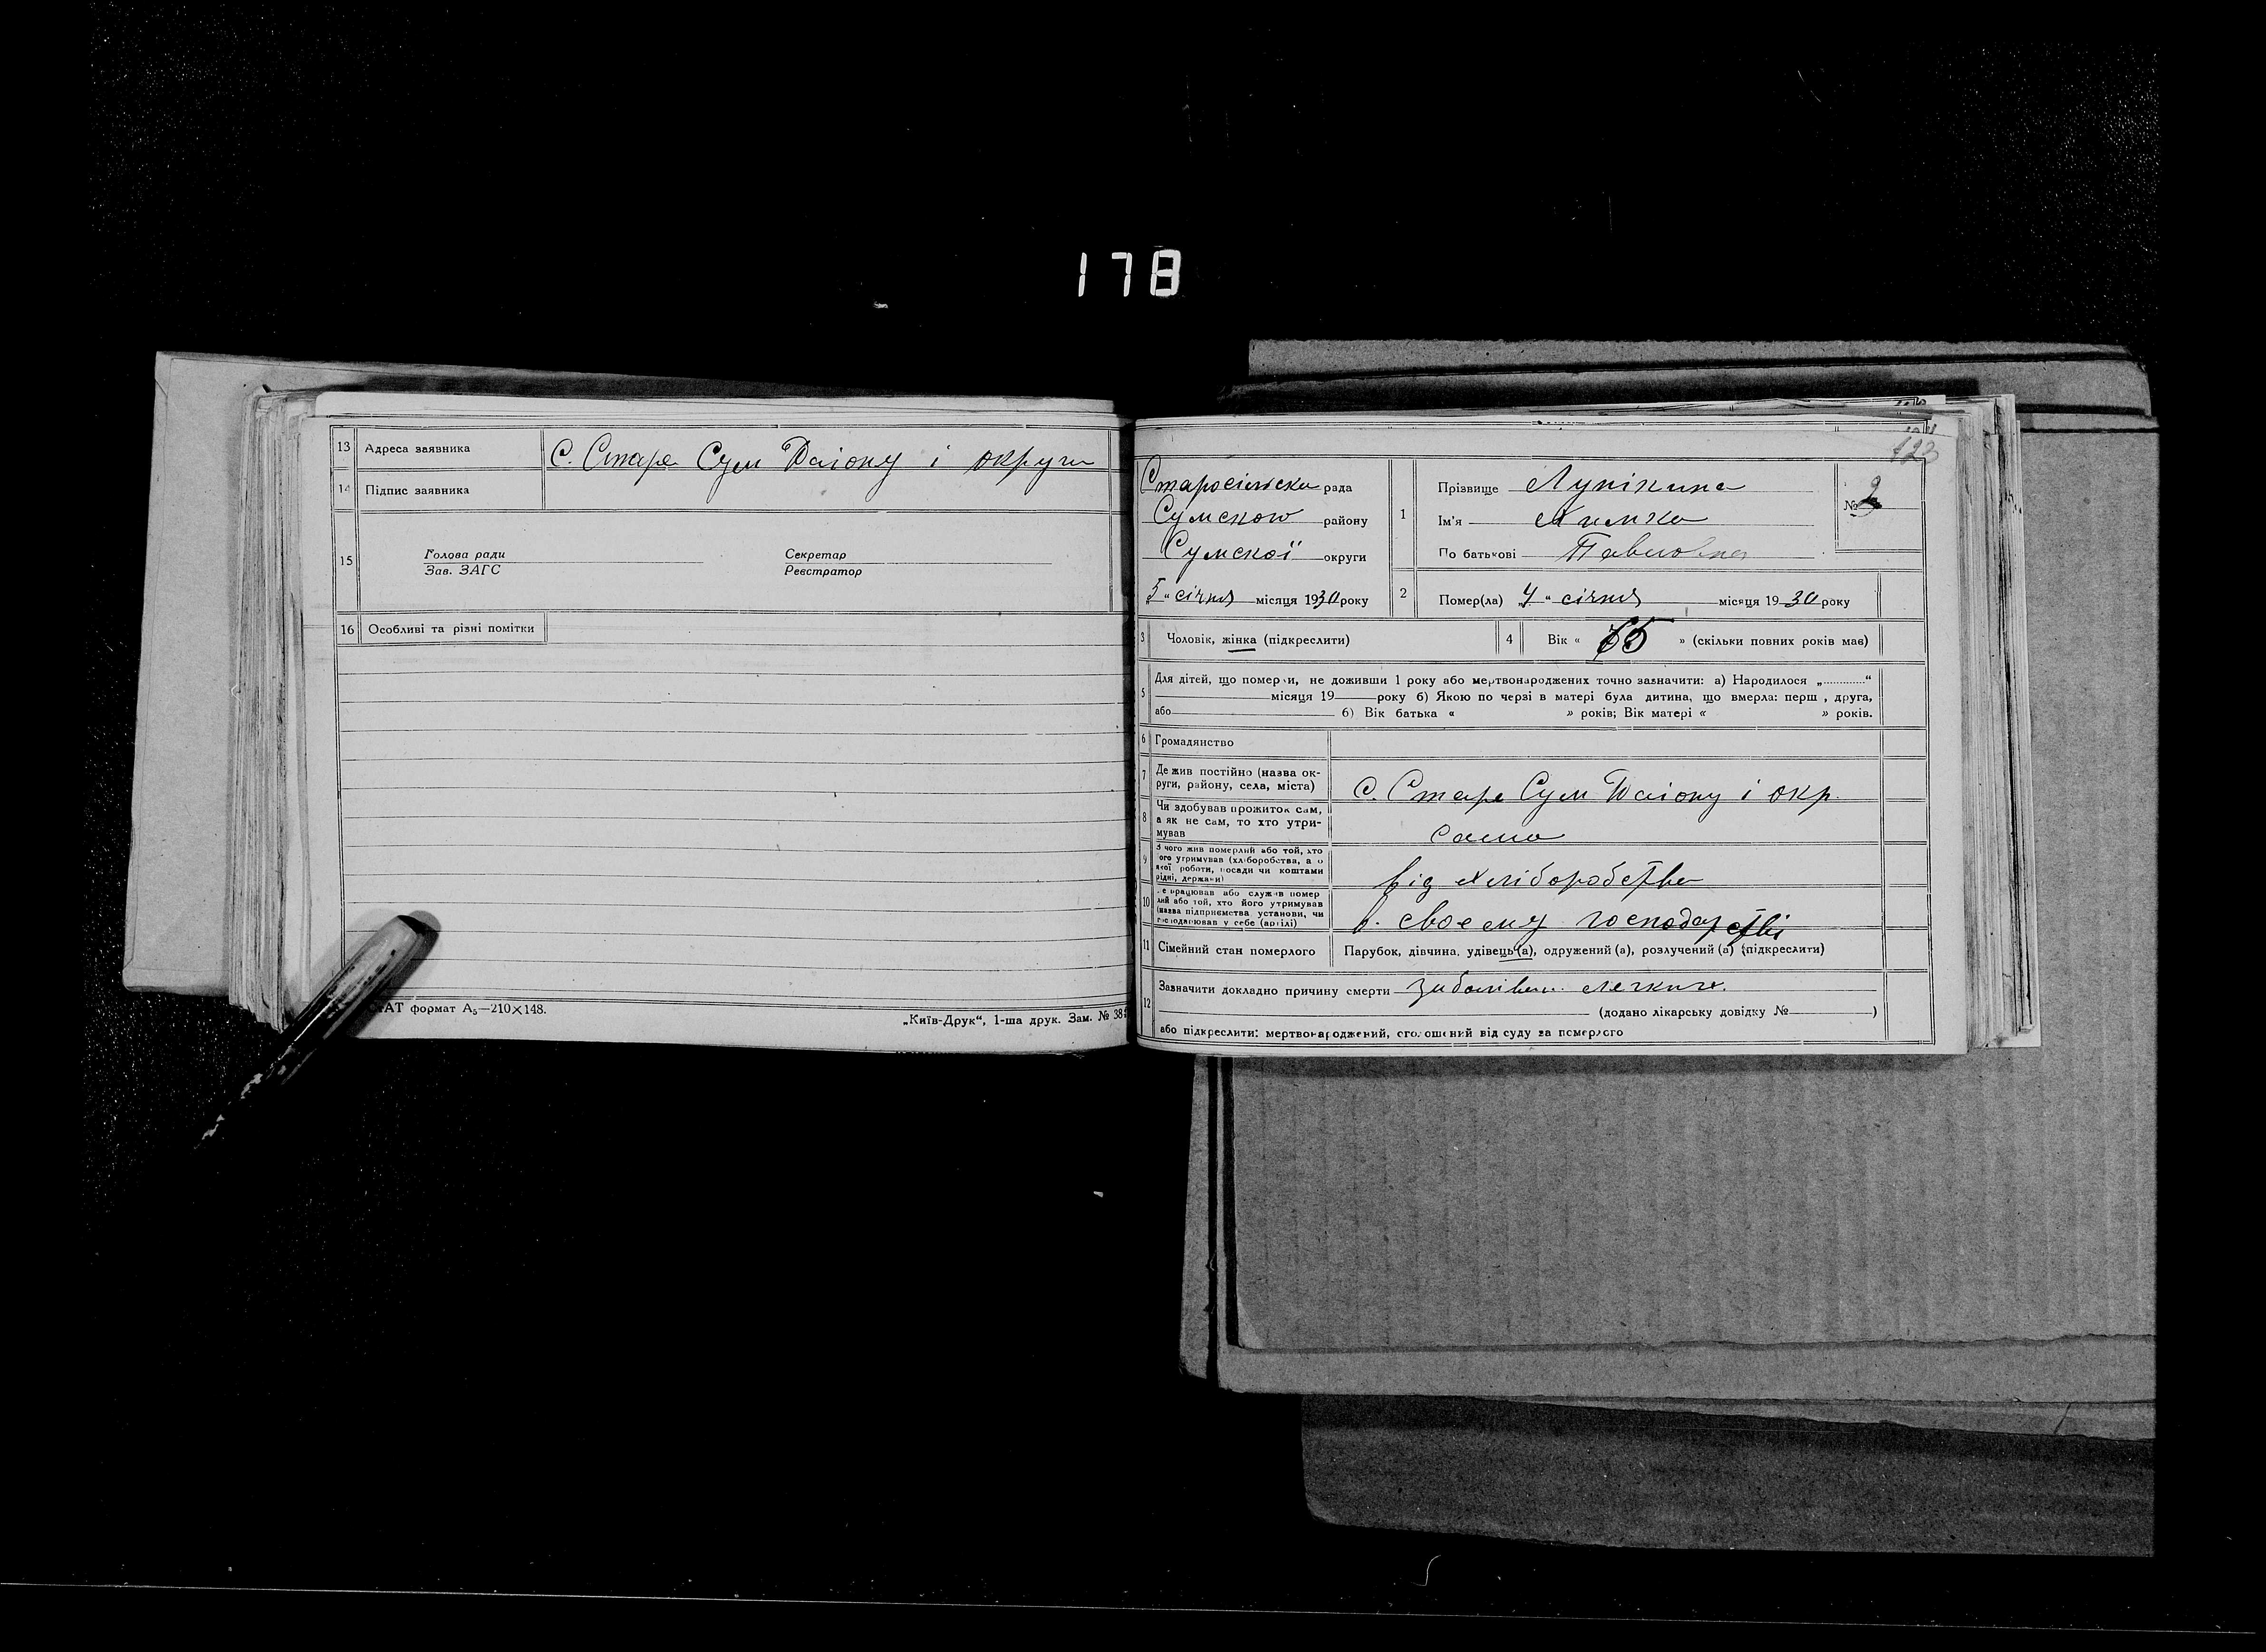 178
13 Адреса заявника С. Старе Сум Району і округи
14 Підпис заявника
15 Голова ради Секретар
Зав. ЗАГС Реєстратор
16 Особливі та різні помітки
формат А₅—210×148.
„Київ-Друк“, 1-ша друк. Зам. № 38
123
Старосільська рада
Сумського району
Сумської округи
„5“ січня місяця 1930 року
1 Прізвище Лупікина
Ім'я Химка
По батькові Павловна
№ 2
2 Помер(ла) „4“ січня місяця 19 30 року
3 Чоловік, жінка (підкреслити)
4 Вік « 75 » (скільки повних років має)
5 Для дітей, що померли, не доживши 1 року або мертвонароджених точно зазначити: а) Народилося „............“
місяця 19 року б) Якою по черзі в матері була дитина, що вмерла: перш , друга,
або б) Вік батька « » років; Вік матері « » років.
6 Громадянство
7 Де жив постійно (назва ок-
руги, району, села, міста) С. Старе Сум Району і окр.
8 Чи здобував прожиток сам,
а як не сам, то хто утри-
мував сама
9 З чого жив померлий або той, хто
його утримував (хліборобства, а о
якої роботи, посади чи коштами
рідні, держави) від хліборобства
10 Де працював або служив помер
лий або той, хто його утримував
(назва підприємства установи, чи
господарював у себе (артілі) в своєму господарстві
11 Сімейний стан померлого Парубок, дівчина, удівець(а), одружений (а), розлучений (а) (підкреслити)
12 Зазначити докладно причину смерти легких.
(додано лікарську довідку № )
або підкреслити: мертвонароджений, оголошений від суду за померлого